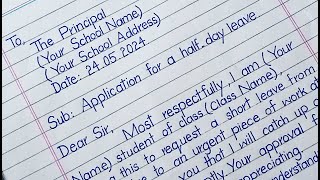 To,
The Principal
(Your School Name)
(Your School Address)
Date: 24.05.2024
Sub: Application for a half day leave
Dear Sir,
Most respectfully, I am (Your
Name) student of class (Class Name)
this to request a short leave from
to an urgent piece of work at
you that I will catch up
Your approval
appreciating
understand